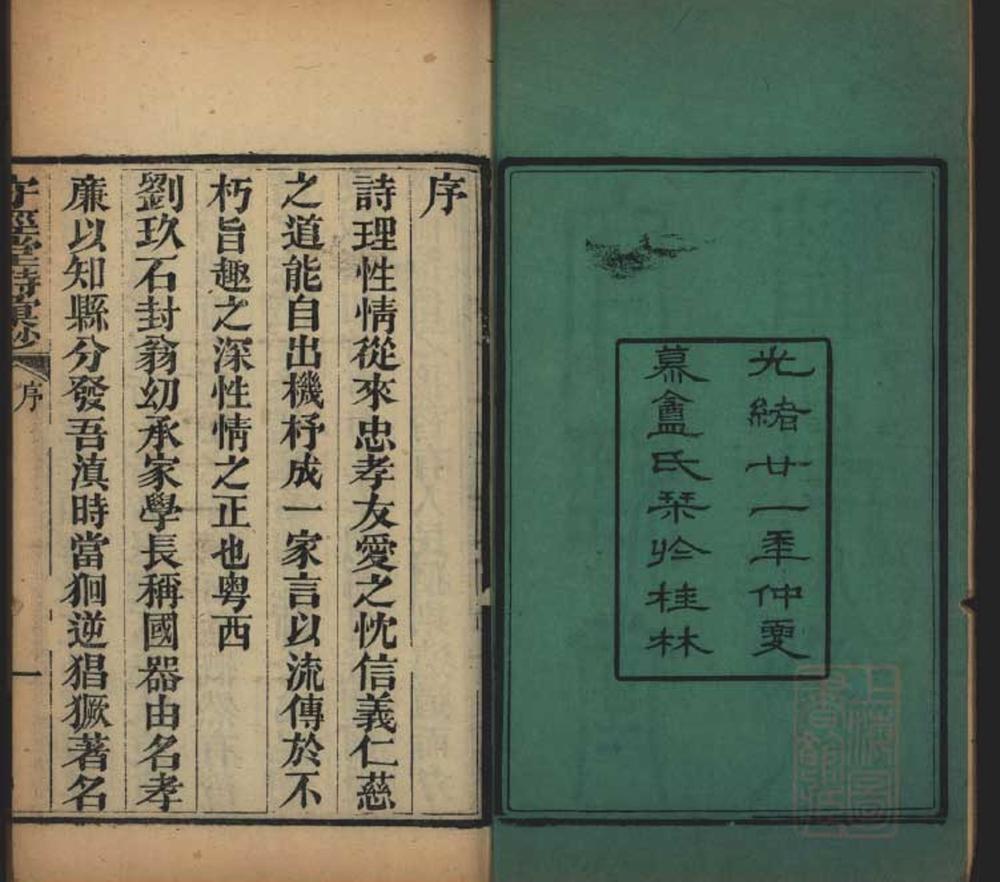 光緒廿一年仲夏
慕盦氏栞於桂林
上海圖書館藏
序
詩理性情從來忠孝友愛之忱信義仁慈
之道能自出機杼成一家言以流傳於不
朽旨趣之深性情之正也粤西
劉玖石封翁幼承家學長稱國器由名孝
廉以知縣分發吾滇時當狪逆猖獗著名
守經堂詩彙鈔
序
一